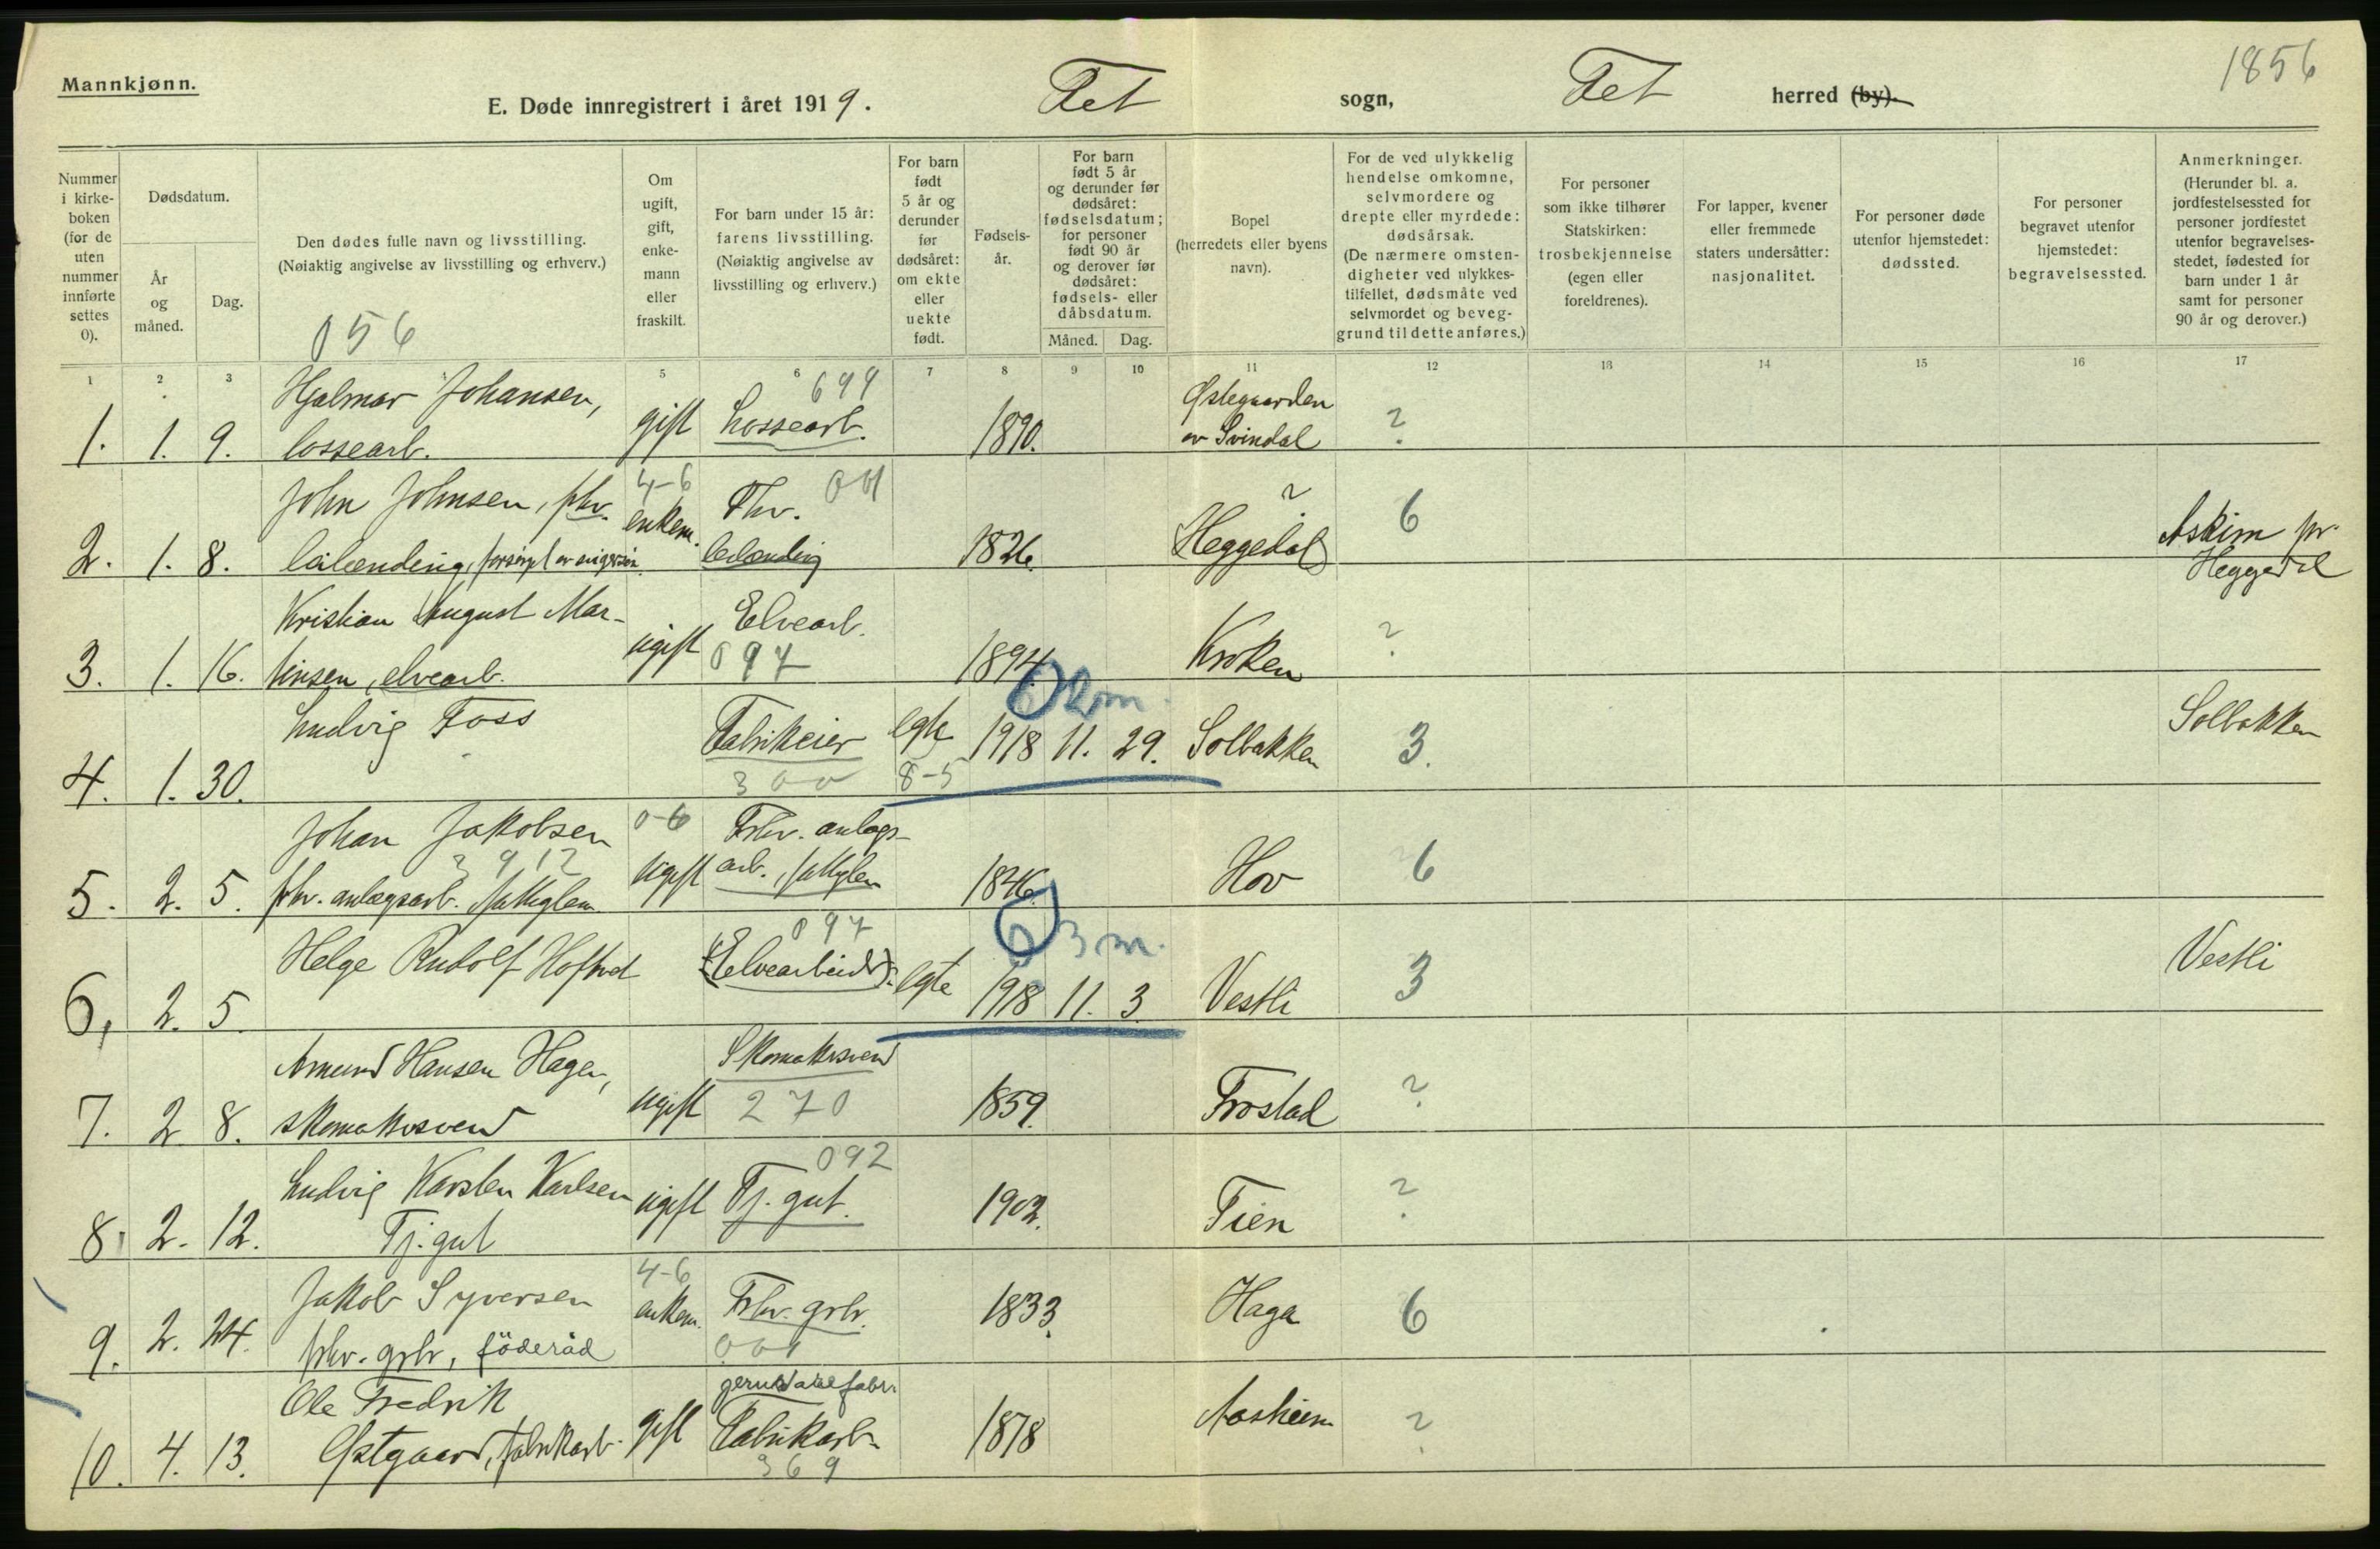 Mannkjønn.
E. Døde innregistrert i året 1919.
Fet sogn,
Fet herred (by).
1856
Nummer i kirke-boken (for de uten nummer innførte settes 0).
Dødsdatum.
År og måned.
Dag.
Den dødes fulle navn og livsstilling.
(Nøiaktig angivelse av livsstilling og erhverv.)
056
Om ugift, gift, enke-mann eller fraskilt.
For barn under 15 år: farens livsstilling.
(Nøiaktig angivelse av livsstilling og erhverv.)
For barn født 5 år og derunder før dødsåret: om ekte eller uekte født.
Fødsels-år.
For barn født 5 år og derunder før dødsåret: fødselsdatum; for personer født 90 år og derover før dødsåret: fødsels- eller dåbsdatum.
Måned.
Dag.
Bopel (herredets eller byens navn).
For de ved ulykkelig hendelse omkomne, selvmordere og drepte eller myrdede: dødsårsak.
(De nærmere omsten-digheter ved ulykkes-tilfellet, dødsmåte ved selvmordet og beveg-grund til dette anføres.)
For personer som ikke tilhører Statskirken: trosbekjennelse (egen eller foreldrenes).
For lapper, kvener eller fremmede staters undersåtter: nasjonalitet.
For personer døde utenfor hjemstedet: dødssted.
For personer begravet utenfor hjemstedet: begravelsessted.
Anmerkninger.
(Herunder bl. a. jordfestelsessted for personer jordfestet utenfor begravelses-stedet, fødested for barn under 1 år samt for personer 90 år og derover.)
1 2 3 4 5 6 7 8 9 10 11 12 13 14 15 16 17
Hjalmar Johansen, 699 Østegaarden
1. 1. 9. lossearb. gift Lossearb. 1890. av Svindal ?
John Johnsen, fhv. 4-6 Fhv. 001 ?
2. 1. 8. leilænding, forsørget av svigersøn enkem. leilænding 1826. Heggedal 6 Askim pr. Heggedal
Kristian August Mar- Elvearb.
3. 1. 16. tinsen, elvearb. ugift 097 1894. Kroken ?
Ludvig Foss 0 2 m.
4. 1. 30. Fabrikeier egte 1918 11. 29. Solbakken 3. Solbakken
300 8-5
Johan Jakobsen 0-6 Fhv. anlægs-
3912
5. 2. 5. fhv. anlægsarb. fattiglem. ugift arb., fattiglem 1846. Hov 6
097 0 3 m.
6. 2. 5. Helge Rudolf Hofstad (Elvearbeider) egte 1918 11. 3. Vestli 3 Vestli
Amund Hansen Hagen, Skomakersvend
7. 2. 8. skomakersvend ugift 270 1859. Frostad ?
092
Ludvig Karsten Karlsen
8. 2. 12. Tj. gut ugift Tj. gut. 1902. Tien ?
Jakob Syversen 4-6
9. 2. 24. fhv. grbr, föderåd enkem. Fhv. grbr. 1833. Haga 6
001
Ole Fredrik
10. 4. 13. Østgaard, fabrikarb. gift Fabrikarb. 1878 Aasheim ?
369